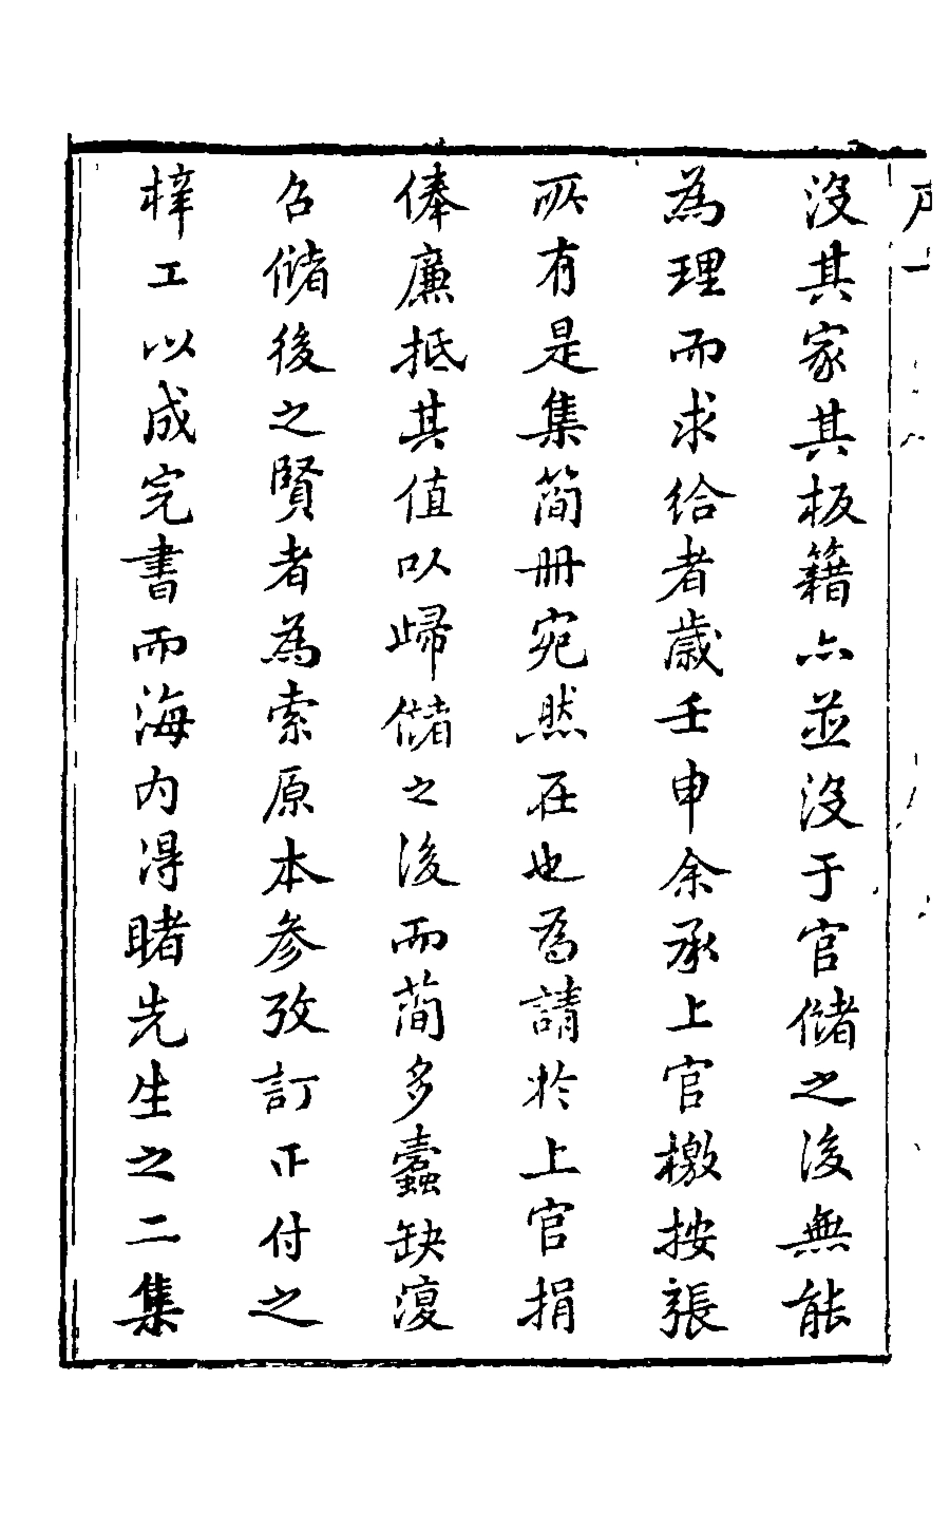 沒其家其板籍亦並沒于官儲之後無能
為理而求給者歲壬申余承上官檄按張
所有是集簡冊宛然在也為請於上官捐
俸廉抵其值以歸儲之後而蕳多蠹缺復
召儲後之賢者為索原本參攷訂正付之
梓工以成完書而海內得睹先生之二集